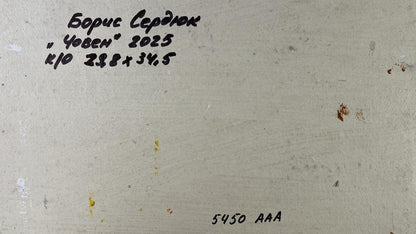 Борис Сердюк
„Човен" 2025
к/о 29,8 х 34,5
5450 ААА